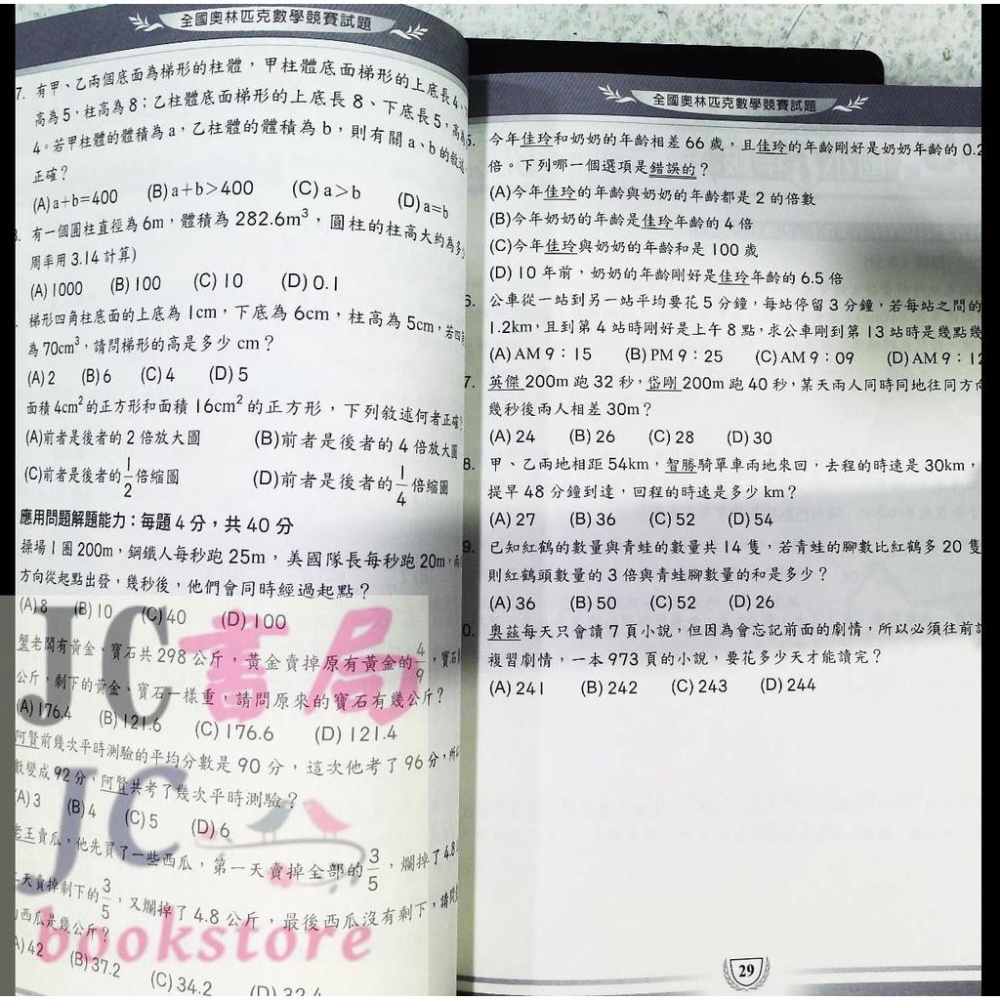 全國奧林匹克數學競賽試題
7. 有甲、乙兩個底面為梯形的柱體，甲柱體底面梯形的上底長4、
高為5，柱高為8；乙柱體底面梯形的上底長8、下底長5，高為
4。若甲柱體的體積為a，乙柱體的體積為b，則有關a、b的敘述
正確？
(A) a+b=400 (B) a+b>400 (C) a>b (D) a=b
有一個圓柱直徑為6m，體積為282.6m³，圓柱的柱高大約為多少
周率用3.14計算)
(A) 1000 (B) 100 (C) 10 (D) 0.1
梯形四角柱底面的上底為1cm，下底為6cm，柱高為5cm，若四
為70cm³，請問梯形的高是多少cm？
(A) 2 (B) 6 (C) 4 (D) 5
面積4cm²的正方形和面積16cm²的正方形，下列敘述何者正確？
(A)前者是後者的2倍放大圖 (B)前者是後者的4倍放大圖
(C)前者是後者的1/2倍縮圖 (D)前者是後者的1/4倍縮圖
應用問題解題能力：每題4分，共40分
操場1圈200m，鋼鐵人每秒跑25m，美國隊長每秒跑20m，兩
方向從起點出發，幾秒後，他們會同時經過起點？
(A) 8 (B) 10 (C) 40 (D) 100
蟹老闆有黃金、寶石共298公斤，黃金賣掉原有黃金的4/9，寶石
公斤，剩下的黃金、寶石一樣重，請問原來的寶石有幾公斤？
(A) 176.4 (B) 121.6 (C) 176.6 (D) 121.4
阿賢前幾次平時測驗的平均分數是90分，這次他考了96分，所
數變成92分，阿賢共考了幾次平時測驗？
(A) 3 (B) 4 (C) 5 (D) 6
老王賣瓜，他先買了一些西瓜，第一天賣掉全部的3/5，爛掉了4.8
天賣掉剩下的3/5，又爛掉了4.8公斤，最後西瓜沒有剩下，請問
西瓜是幾公斤？
(A) 42 (B) 37.2 (C) 34.2 (D) 32.4
JC書局
JC
bookstore
全國奧林匹克數學競賽試題
5. 今年佳玲和奶奶的年齡相差66歲，且佳玲的年齡剛好是奶奶年齡的0.2
倍。下列哪一個選項是錯誤的？
(A)今年佳玲的年齡與奶奶的年齡都是2的倍數
(B)今年奶奶的年齡是佳玲年齡的4倍
(C)今年佳玲與奶奶的年齡和是100歲
(D) 10年前，奶奶的年齡剛好是佳玲年齡的6.5倍
6. 公車從一站到另一站平均要花5分鐘，每站停留3分鐘，若每站之間的
1.2km，且到第4站時剛好是上午8點，求公車剛到第13站時是幾點幾
(A) AM 9：15 (B) PM 9：25 (C) AM 9：09 (D) AM 9：12
7. 英傑200m跑32秒，岱剛200m跑40秒，某天兩人同時同地往同方向
幾秒後兩人相差30m？
(A) 24 (B) 26 (C) 28 (D) 30
8. 甲、乙兩地相距54km，智勝騎單車兩地來回，去程的時速是30km，
提早48分鐘到達，回程的時速是多少km？
(A) 27 (B) 36 (C) 52 (D) 54
9. 已知紅鶴的數量與青蛙的數量共14隻，若青蛙的腳數比紅鶴多20隻
則紅鶴頭數量的3倍與青蛙腳數量的和是多少？
(A) 36 (B) 50 (C) 52 (D) 26
0. 奧茲每天只會讀7頁小說，但因為會忘記前面的劇情，所以必須往前
複習劇情，一本973頁的小說，要花多少天才能讀完？
(A) 241 (B) 242 (C) 243 (D) 244
29